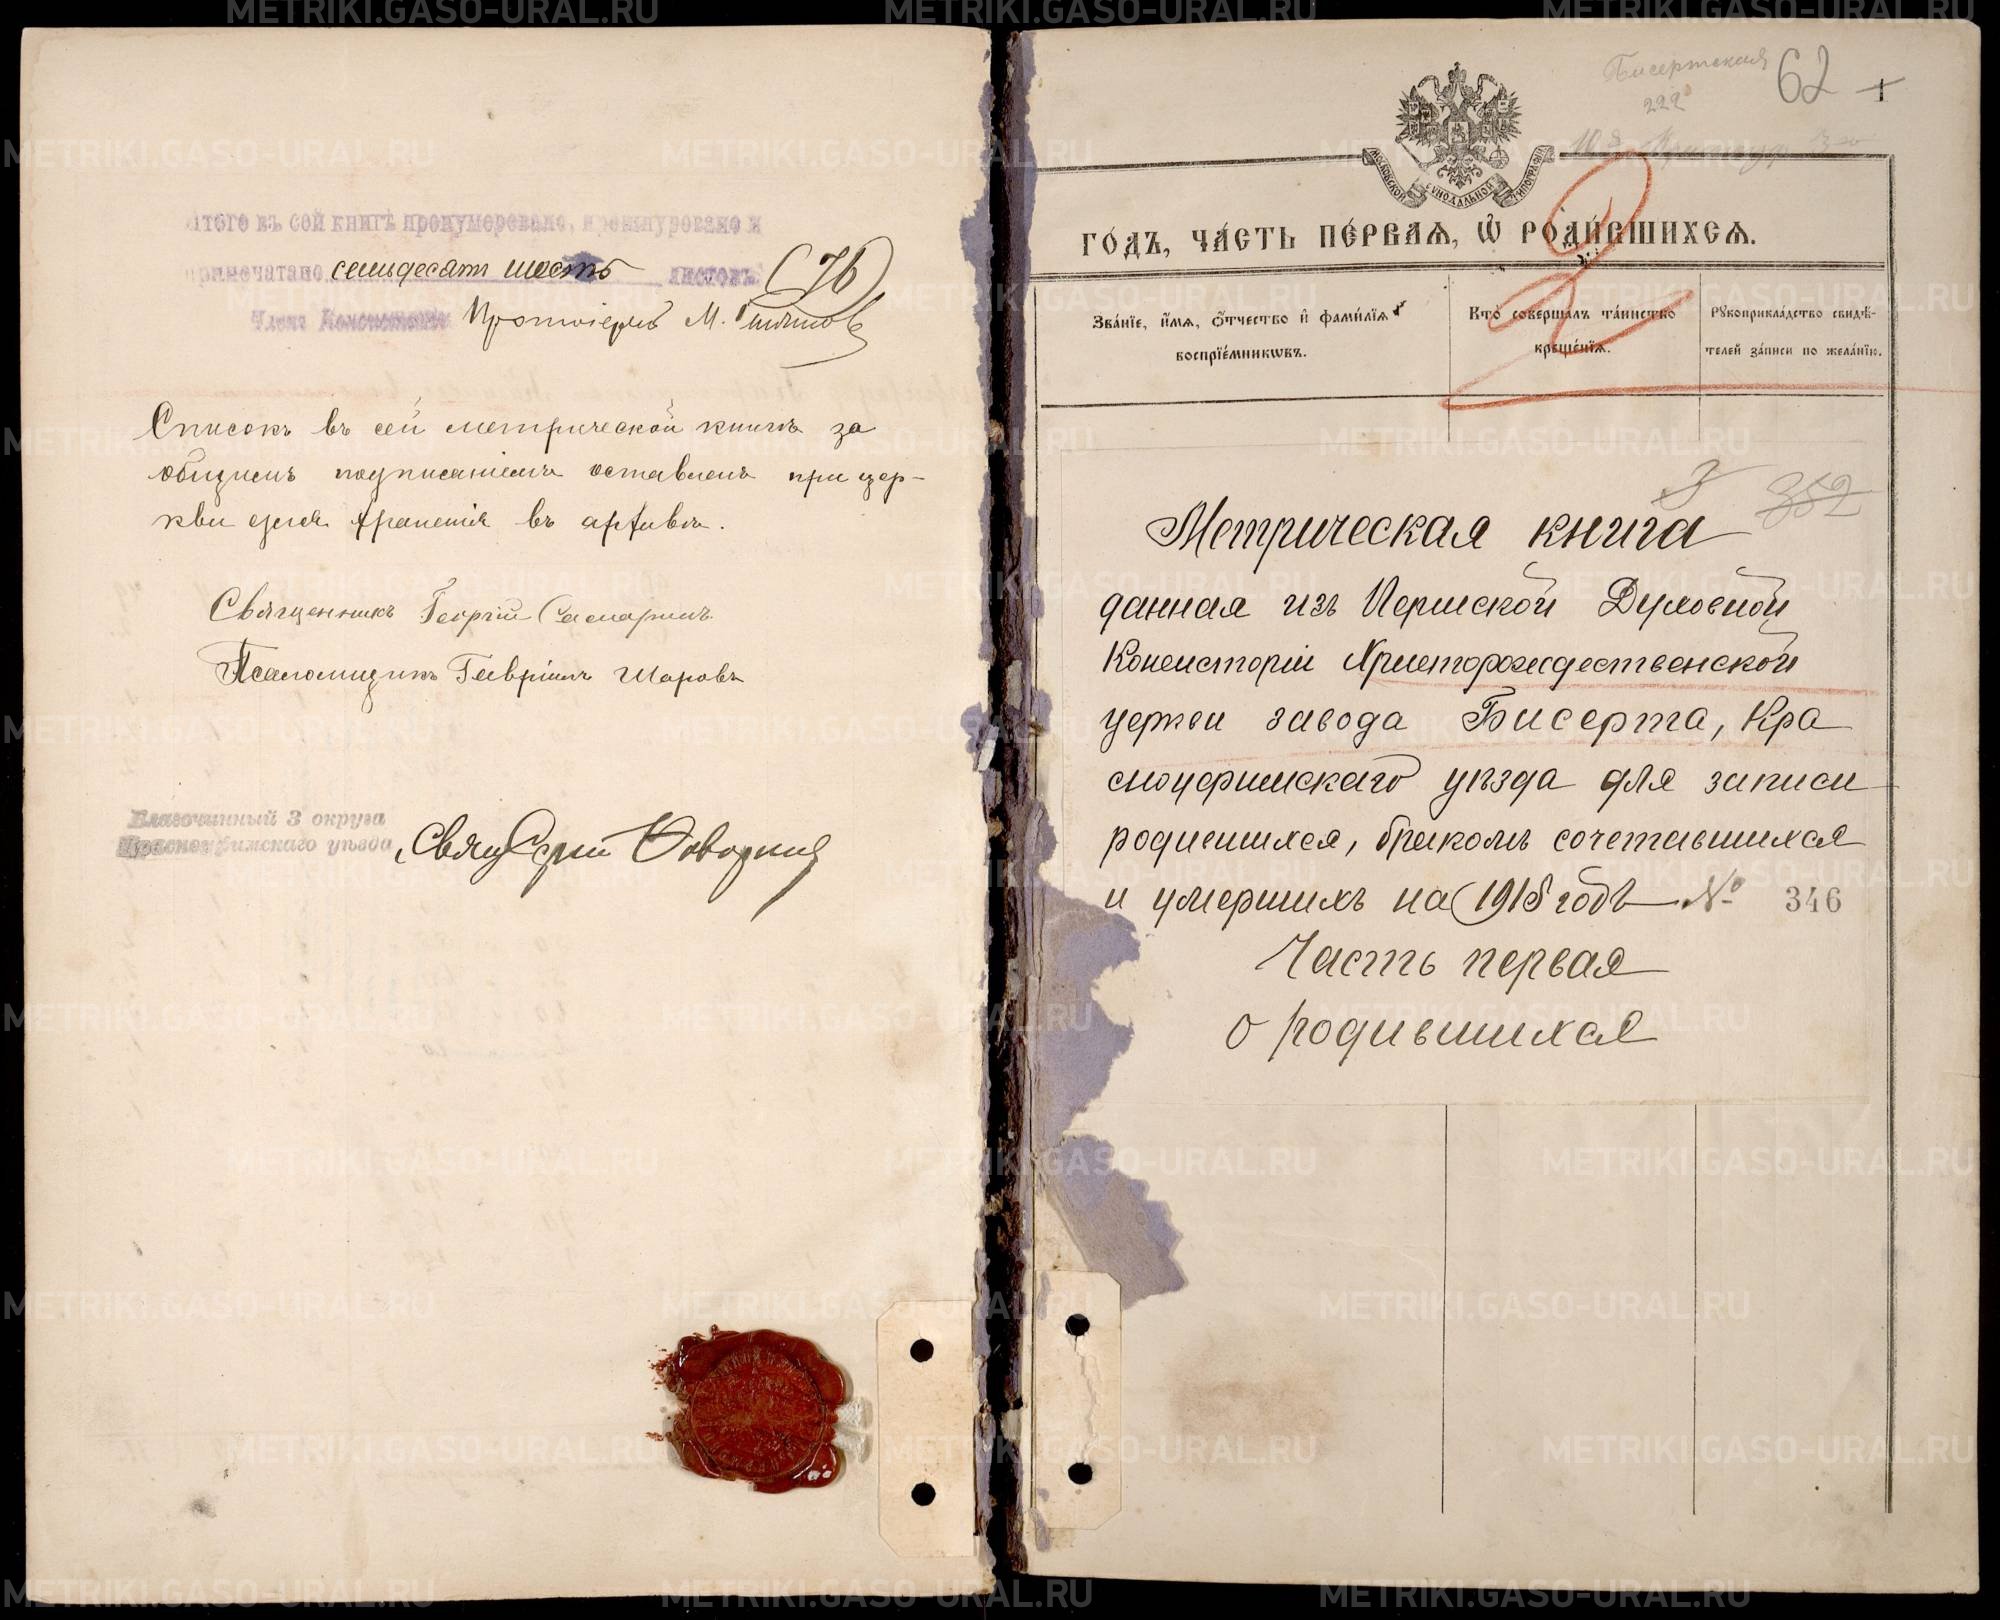 Итого въ сей книгѣ пронумеровано, прошнуровано и
припечатано семьдесятъ шесть листовъ (76)
Членъ Консисторіи Протоіерей М.
Списокъ въ сей метрической книги за
общимъ подписаніемъ оставленъ при цер-
кви для храненія въ архивѣ.
Священникъ Георгій Самаринъ
Псаломщикъ Гавріилъ Шаровъ
Благочинный 3 округа
Красноуфимскаго уѣзда, Свящ Сергій
Бисертская
222
62
1
МОСКОВСКОЙ СѴНОДАЛЬНОЙ ТИПОГРАФІИ
ГОДЪ, ЧАСТЬ ПЕРВАЯ, Ѡ РОДИВШИХСЯ.
Званіе, имя, отчество и фамилія
воспріемниковъ.
Кто совершалъ таинство
крещенія.
Рукоприкладство свидѣ-
телей записи по желанію.
3 352
Метрическая книга
данная изъ Пермской Духовной
Консисторіи Христорождественской
церкви завода Бисерта, Кра
сноуфимскаго уѣзда для записи
родившихся, бракомъ сочетавшихся
и умершихъ на 1918 годъ № 346
Часть первая
о родившихся
METRIKI.GASO-URAL.RU